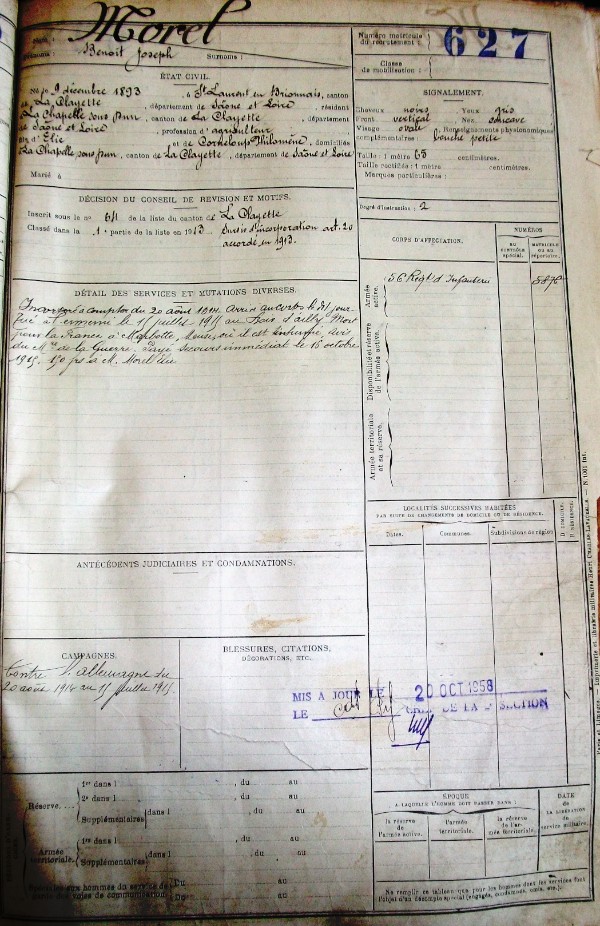 Nom : Morel
Prénoms : Benoît Joseph Surnoms :
Numéro matricule du recrutement : 627
Classe de mobilisation :
ÉTAT CIVIL.
Né le 9 décembre 1893, à St Laurent en Brionnais, canton
de La Clayette, département de Saône et Loire, résidant
La Chapelle sous Dun, canton de La Clayette, département
de Saône et Loire, profession d'agriculteur
fils d'Elie et de Corneloup Philomène, domiciliés
La Chapelle sous Dun, canton de La Clayette, département de Saône et Loire
Marié à
SIGNALEMENT.
Cheveux noirs Yeux gris
Front vertical Nez concave
Visage ovale Renseignements physionomiques
complémentaires : bouche petite
Taille : 1 mètre 65 centimètres.
Taille rectifiée : 1 mètre centimètres.
Marques particulières :
Degré d'instruction : 2
DÉCISION DU CONSEIL DE RÉVISION ET MOTIFS.
Inscrit sous le n° 64 de la liste du canton de La Clayette
Classé dans la 1e partie de la liste en 1913 Sursis d'incorporation art. 20
accordé en 1913.
DÉTAIL DES SERVICES ET MUTATIONS DIVERSES.
Incorporé à compter du 20 août 1914. Arrivé au corps le dit jour
Tué à l'ennemi le 15 juillet 1915 au Bois d'Ailly Mort
pour la France à Marbotte, Meuse, où il est inhumé, Avis
du Mre de la Guerre Payé secours immédiat le 15 octobre
1915. 150 frs à M. Morel Elie
CORPS D'AFFECTATION.
NUMÉROS
AU CONTRÔLE spécial.
MATRICULE OU AU répertoire.
Armée active.
56 Régt d'Infanterie
Disponibilité et réserve de l'armée active.
Armée territoriale et sa réserve.
ANTÉCÉDENTS JUDICIAIRES ET CONDAMNATIONS.
LOCALITÉS SUCCESSIVES HABITÉES
PAR SUITE DE CHANGEMENTS DE DOMICILE OU DE RÉSIDENCE.
Dates. Communes. Subdivisions de région
D DOMICILE.
R RÉSIDENCE.
CAMPAGNES.
Contre l'allemagne du
20 août 1914 au 15 juillet 1915.
BLESSURES, CITATIONS,
DÉCORATIONS, ETC.
MIS A JOUR LE 20 OCT 1958
LE DE LA SECTION
Réserve....
1er dans l , du au
2e dans l , du au
Supplémentaires dans l , du au
Armée territoriale.
1re dans l , du au
Supplémentaires dans l , du au
Spéciales aux hommes du service de
garde des voies de communication
Du au
Du au
ÉPOQUE
A LAQUELLE L'HOMME DOIT PASSER DANS :
la réserve de l'armée active.
l'armée territoriale.
la réserve de l'armée territoriale.
DATE
de
LA LIBÉRATION
du service militaire.
Ne remplir ce tableau que pour les hommes dont les services font
l'objet d'un décompte spécial (engagés, condamnés, omis, etc.).